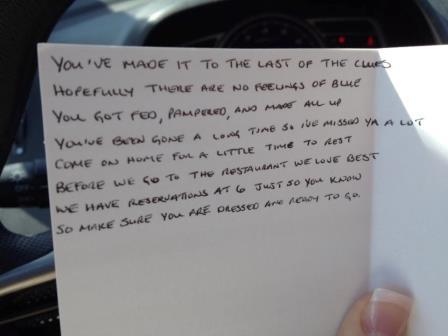 YOU'VE MADE IT TO THE LAST OF THE CLUES
HOPEFULLY THERE ARE NO FEELINGS OF BLUE
YOU GOT FED, PAMPERED, AND MADE ALL UP
YOU'VE BEEN GONE A LONG TIME SO I'VE MISSED YA A LOT
COME ON HOME FOR A LITTLE TIME TO REST
BEFORE WE GO TO THE RESTAURANT WE LOVE BEST
WE HAVE RESERVATIONS AT 6 JUST SO YOU KNOW
SO MAKE SURE YOU ARE DRESSED AND READY TO GO.